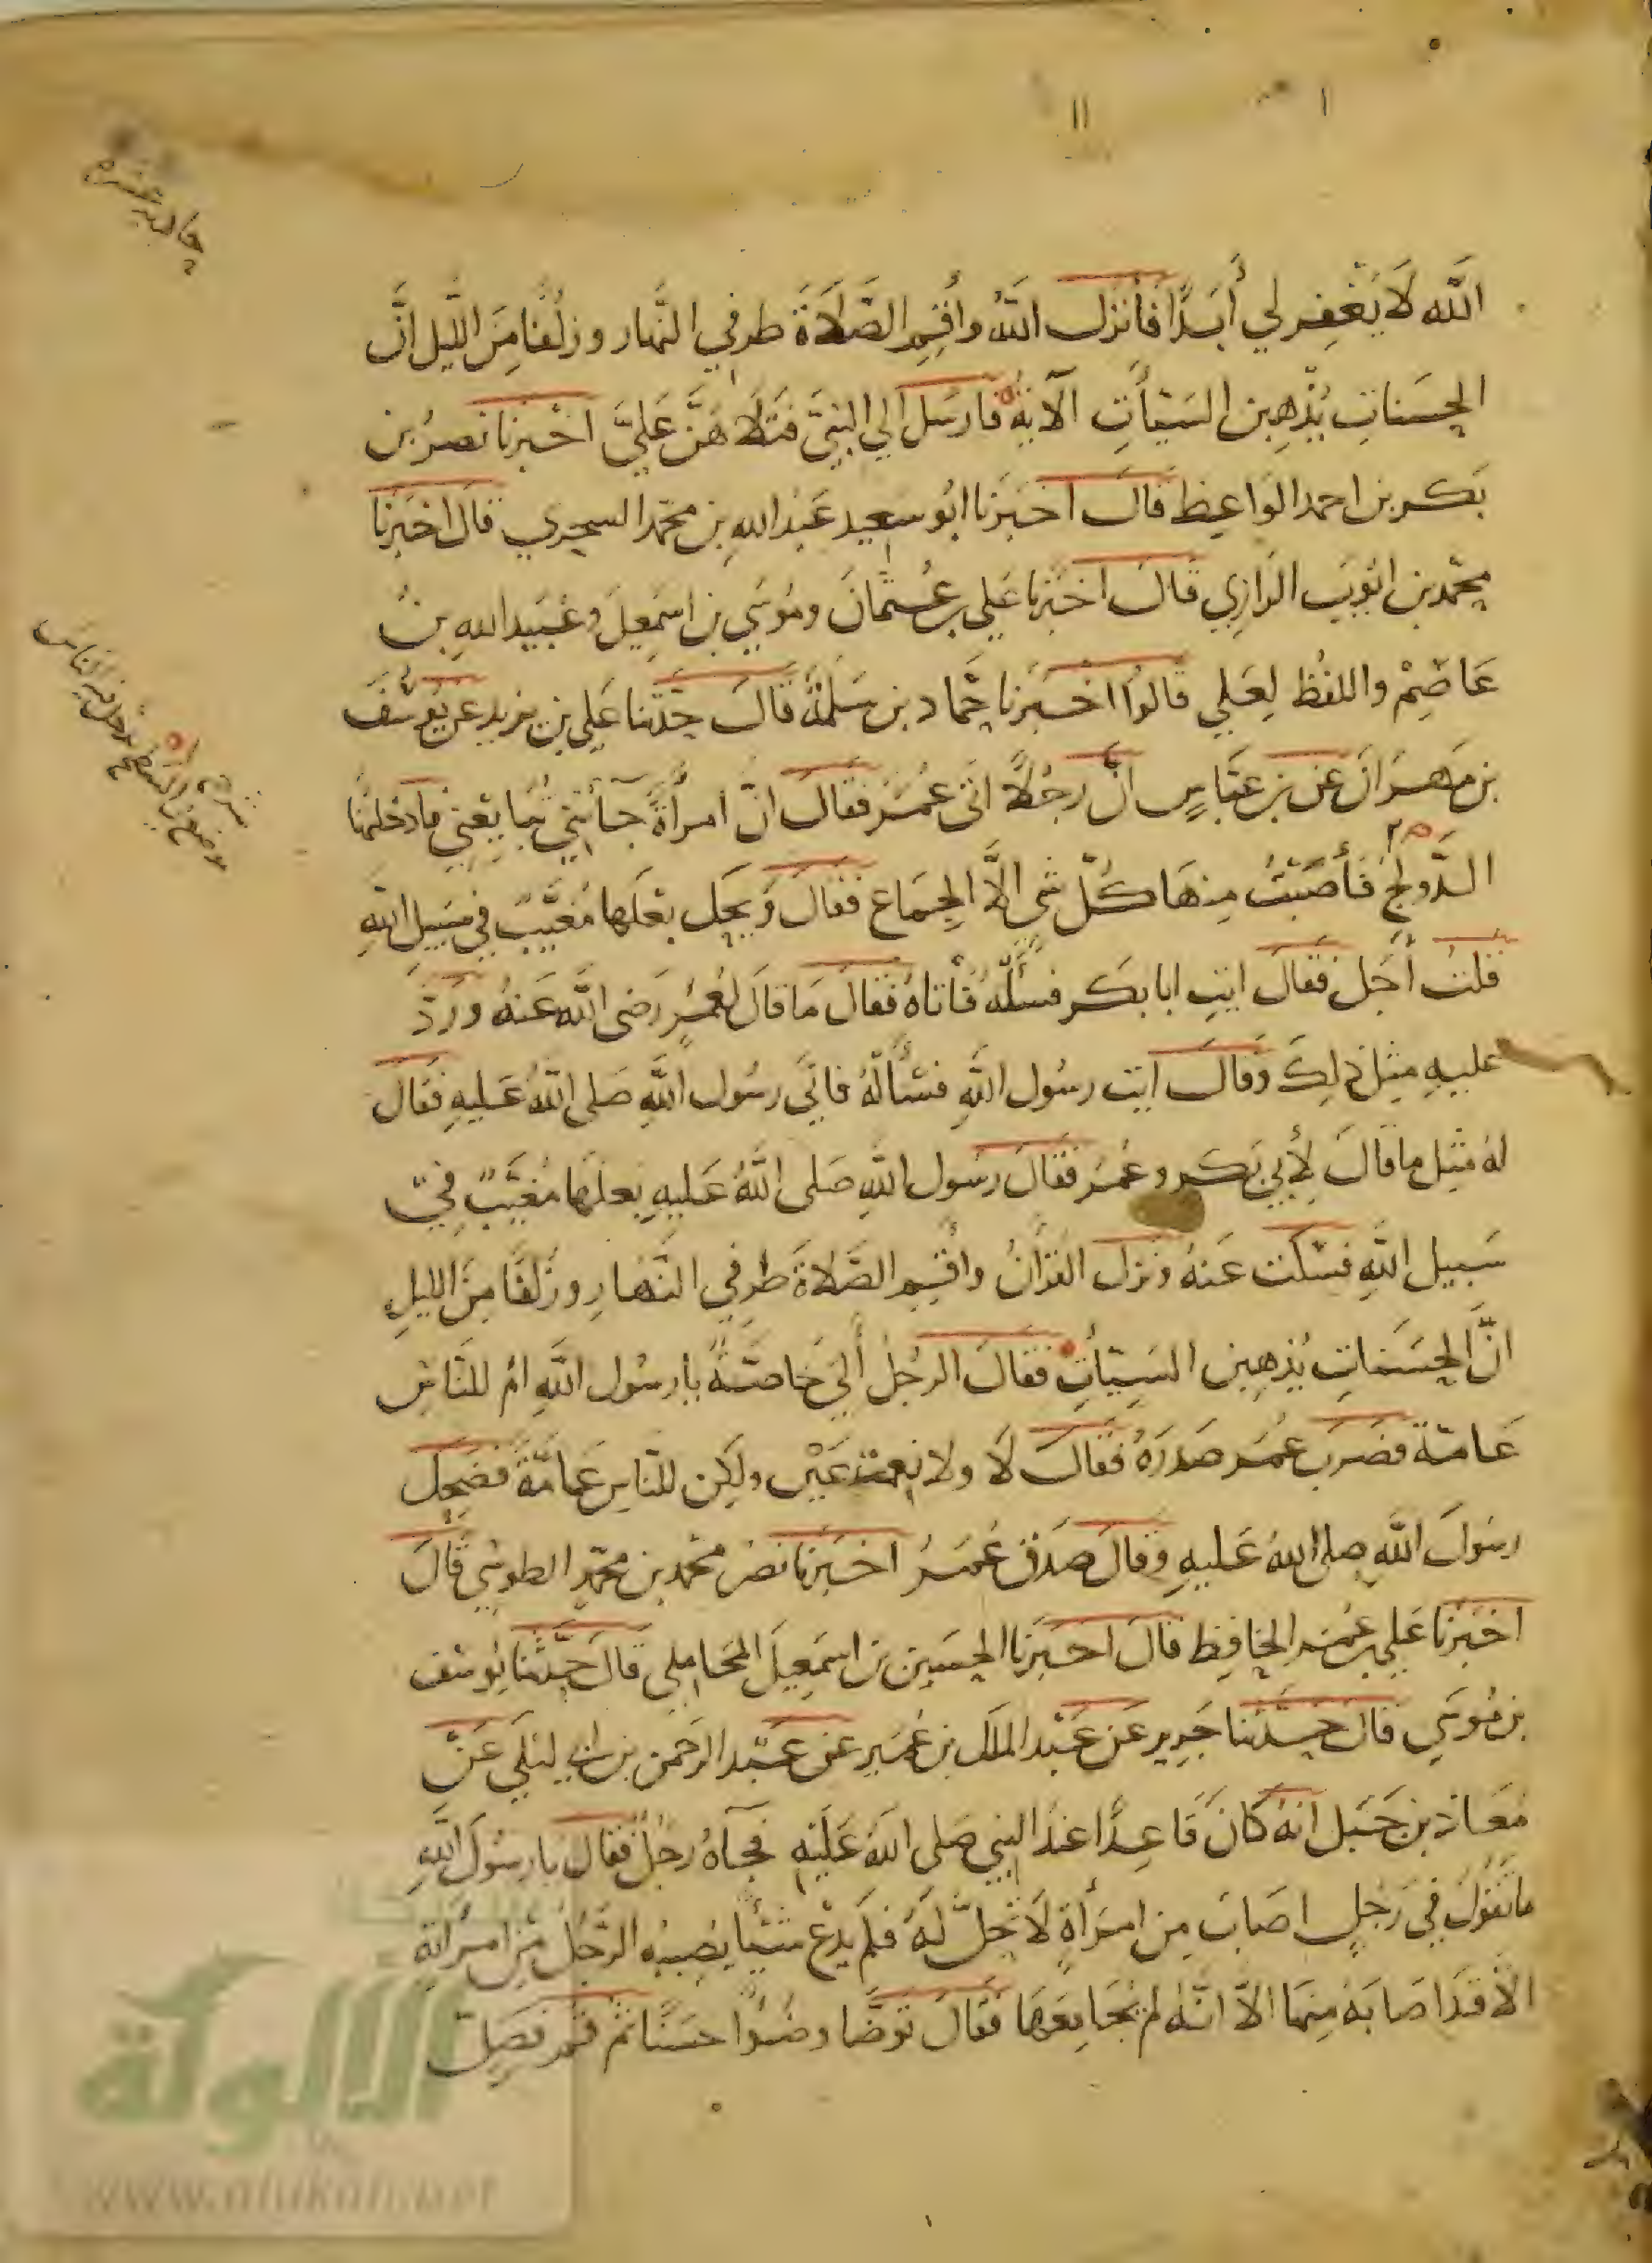 اللَّه لَا يَغْفِر لي أَبَدًا فأنزل اللَّهُ وأَقِمِ الصَّلَاةَ طرفي النَّهار وزُلَفًا مِنَ اللَّيل انَّ
الحَسَناتِ يُذْهِبن السَّيئَاتِ الآية فارسَل الي النبيّ فَتَلَا هُنَّ عَليَّ اخبرنا نصرُ بن
بَكر بن احمد الوَاعِظ قال اخبَرنا ابُو سعيد عَبد اللهِ بن محمّد السجزي قال اخبَرنا
محمّد بن ايّوبَ الرازِي قال اخبَرنا عَلي بن عُثمانَ ومُوسَي بن اسمعِيلَ وعُبَيد اللهِ بنُ
عَاصِمْ واللفُظ لِعَلي قالوا اخبَرنا حمّاد بن سَلمَةُ قال حدّثنا عَلي بن يزيد عن يوسُفَ
بن مَهرَانَ عَن بن عَبَّاسٍ انَّ رجُلًا اتى عُمَرَ فقَالَ انَّ امرأَةً جَآئَتني تُبَايعُني فَادخَلتُها
الدَّولَجَ فَأصَبتُ مِنهَا كلَّ شي الَّا الجِمَاع فقال وَيحَكَ بَعْلَها مُغَيَّبٌ في سَبيل اللهِ
قلتُ أَجَل فقال ايتِ ابا بكر فسئلهُ فأتاهُ فقال مَا قالَ لِعُمَرٍ رَضى اللَّه عَنهُ ورَدّ
عليهِ مِثل ذلِكَ وقال ايت رسُول اللَّهِ فسْألهُ فاتَى رسُول اللَّهِ صَلى اللَّهُ عَليهِ فقال
لهُ مثِل ما قالَ لِأبي بَكرٍ وعُمَرُ فقالَ رسُول اللَّهِ صَلى اللَّهُ عَليهِ بَعلَها مُغَيَّبٌ في
سَبيل اللَّهِ فسَكت عَنهُ ونَزل القرآنُ وأقِمِ الصَّلَاةَ طرفي النَّهارِ وزُلَفًا مِنَ الليلِ
انَّ الحَسَناتِ يُذهِبن السَيئَاتِ فقالَ الرجُلُ أَلِيَ خَاصَّةً يا رسُول اللَّهِ امْ للنَّاسِ
عَامَّة فضَرَب عُمَر صَدرَهُ فقال لَا ولا نعمتَ عَيْن ولكِن للنّاسِ عَامَّةً فضَحِكَ
رسُولَ اللَّهِ صلى اللهُ عَليهِ وقالَ صَدَق عُمَرُ اخبَرنا نصر محمّد بن محمّدٍ الطوسي قال
اخبَرنا عَلي بن عُمَر الحَافِظ قالَ اخبَرنا الحسَين بن اسمَعِيلَ المحَاملي قالَ حدَّثنا يُوسُف
بن مُوسَي قال حدّثنا جَرير عَن عَبْد الملَك بن عُمَيرٍ عَن عَبد الرحمن بن ابي ليلَي عَنْ
مُعَاذ بن جَبَل انهُ كَانَ قاعِدًا عندَ النبي صَلى اللَّهُ عَلَيهِ فجَآهُ رجُلٌ فقالَ يا رسُولَ اللَّهِ
ما تقولُ في رَجُلٍ اصَابَ مِن امرَأةٍ لَا تَحِلّ لَهُ فلَم يَدَعْ شيئًا يُصِيبهُ الرَّجُلُ مِنِ امرَاتهِ
الّا قد اصَابَهُ مِنهَا الّا انّهُ لم يُجَامِعهَا فقال تَوَضَّا وضُوًا حسَنًا ثم قم فصَلّ
الألوكة
www.alukah.net